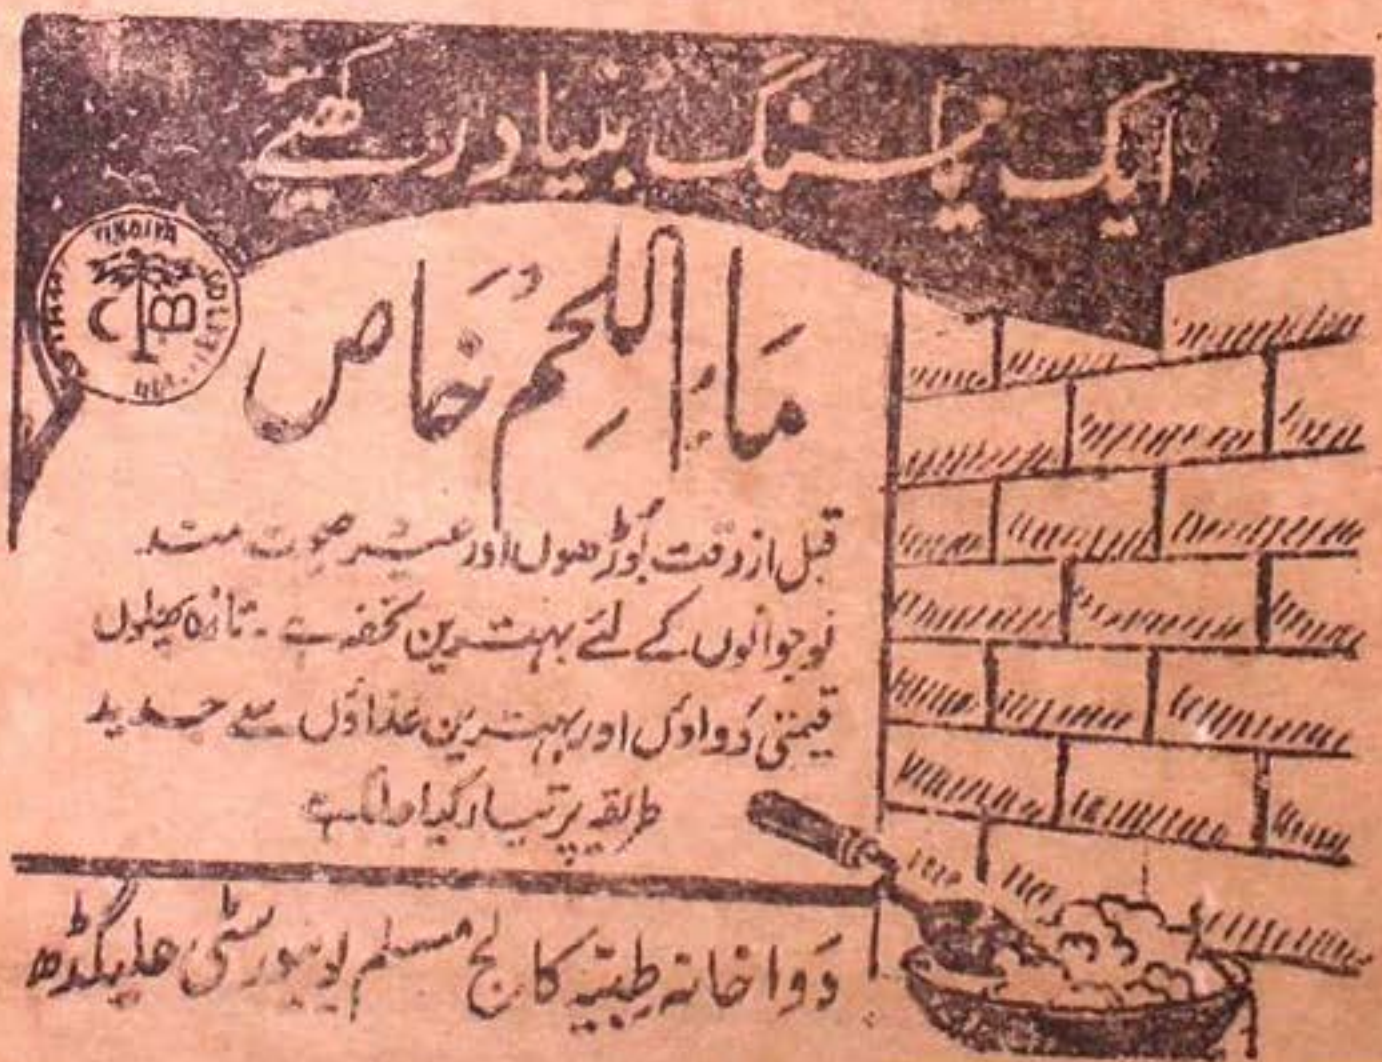 ایک نیا سنگ بنیاد رکھئے
ماء اللحم خاص
قبل از وقت بوڑھوں اور غیر صحت مند
نوجوانوں کے لئے بہترین تحفہ ہے۔ تازہ پھلوں
قیمتی دواوں اور بہترین غذاؤں سے جدید
طریقہ پر تیار کیا جاتا ہے
دواخانہ طبیہ کالج مسلم یونیورسٹی علیگڑھ
C B